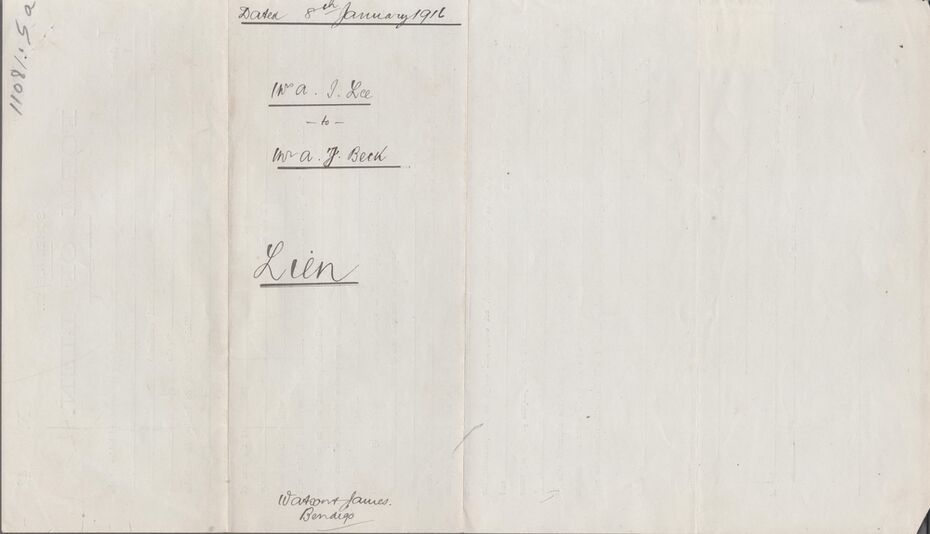 Dated 8th January 1916
Mr A. I. Lee
– to –
Mr A. J. Beck
Lien
Watson & James.
Bendigo